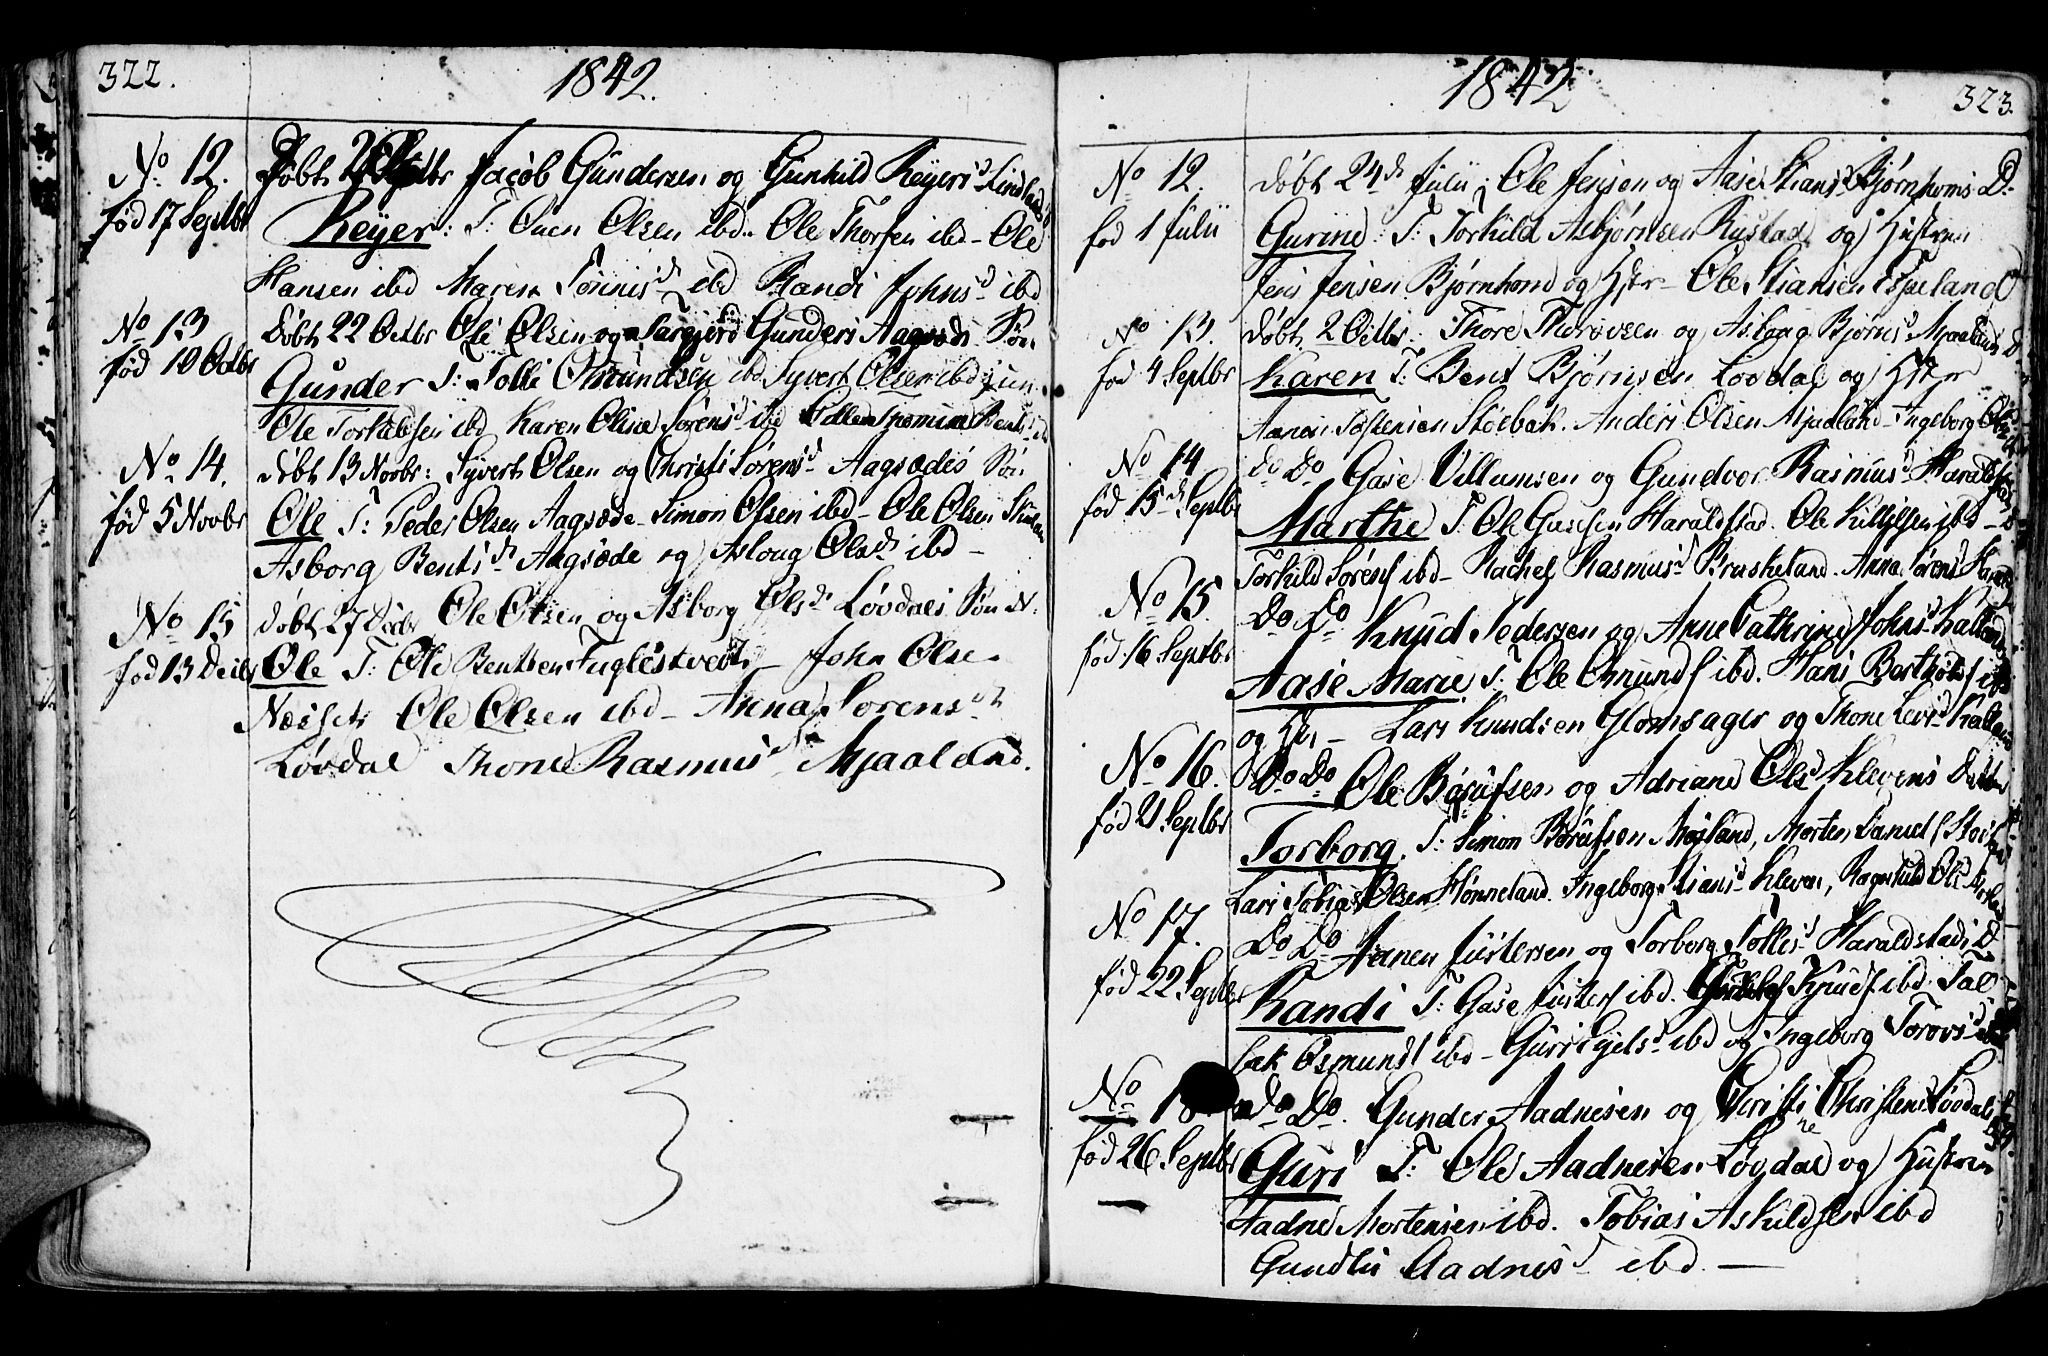 322.
1842.
No 12.
fød 17 Septbr
Døbt Septbr Jacob Gundersen og Gunhild Reyersd Lindland
Reyer: T: Ouen Olsen ibd. Ole Thorsen ibd - Ole
Hansen ibd Maren Tønnisd ibd Randi Johnsd ibd
No 13
fød 10 Octbr
Døbt 22 Octbr Ole Olsen og Gunders Aagsæde Søn
Gunder T: Tolle Omundsen ibd Syvert Olsen ibd jun.
Ole Torkildsen ibd Karen Oline Sørensd ibd
No 14.
fød 5 Novbr
døbt 13 Novbr: Syvert Olsen og Christi Sørensd Aagsædes Søn
Ole T: Peder Olsen Aagsæde - Simon Olsen ibd - Ole Olsen
Asborg Bentsd Aagsæde og Asloug Olsd ibd -
No 15
fød 13 Decbr
døbt 27 Decbr Ole Olsen og Asborg Olsd Løvdals Søn N:
Ole T: Ole Bentsen Fuglestvedt - John Olsen
Næsset Ole Olsen ibd - Anna Sørensd
Løvdal Thone Rasmusd Mjaaland.
1842
323.
No 12.
fød 1 Julii
døbt 24d Julii: Ole Jensen og Aase Stiansd Bjørnhoms D:
Gurine: T: Torkild Asbjørnsen Rustad og Hustrue
Jens Jensen Bjørnhom og Hstr - Ole Stiansen
No 13.
fød 4 Septbr
døbt 2 Octbr: Thore Thorovsen og Aslaug Bjørnsd Mjaalands D.
Karen T: Bent Bjørnsen Løvdal og Hstr
Aanen Tostensen Støebak. Anders Olsen Mjaaland - Ingeborg
No 14
fød 15d Septbr
Do Do Gase Villumsen og Gundvor Rasmusd Haraldstad
Marthe T: Ole Gasesen Haraldstad. Ole Killjelsen ibd -
Torkild Sørens ibd - Rachel Rasmusd Bruskeland. Anna Sørensd
No 15
fød 16 Septbr
Do Do Knud Pedersen og Anne Cathrine Johnsd
Aase Marie T: Ole Omunds ibd. Hans Bertholds ibd
og Hstr - Lars Knudsen Glomsager og Thone Levisd
No 16.
fød 21 Septbr
Do Do Ole Børufsen og Adriane Olsd Klevens Datter
Torborg. T: Simon Børufsen Mosland, Morten Daniels
Lars Tobias Olsen Hønneland. Ingeborg Stiansd Kleven, Ragnhild Olsd
No 17.
fød 22 Septbr
Do Do Aanen Justersen og Torborg Tollesd Haraldstads D
Randi T: Gase Justers ibd. Knuds ibd. Tal
lak Osmunds ibd - Guri Gjelsd ibd og Ingeborg Torovsd ibd
No 18
fød 26 Septbr
Do Do. Gunder Aadnesen og Christi Christensd Løvdals
Guri T: Ole Aadnesen Løvdal og Hustrue
Aadne Mortensen ibd. Tobias Askildsen ibd
Aadnesd ibd. —